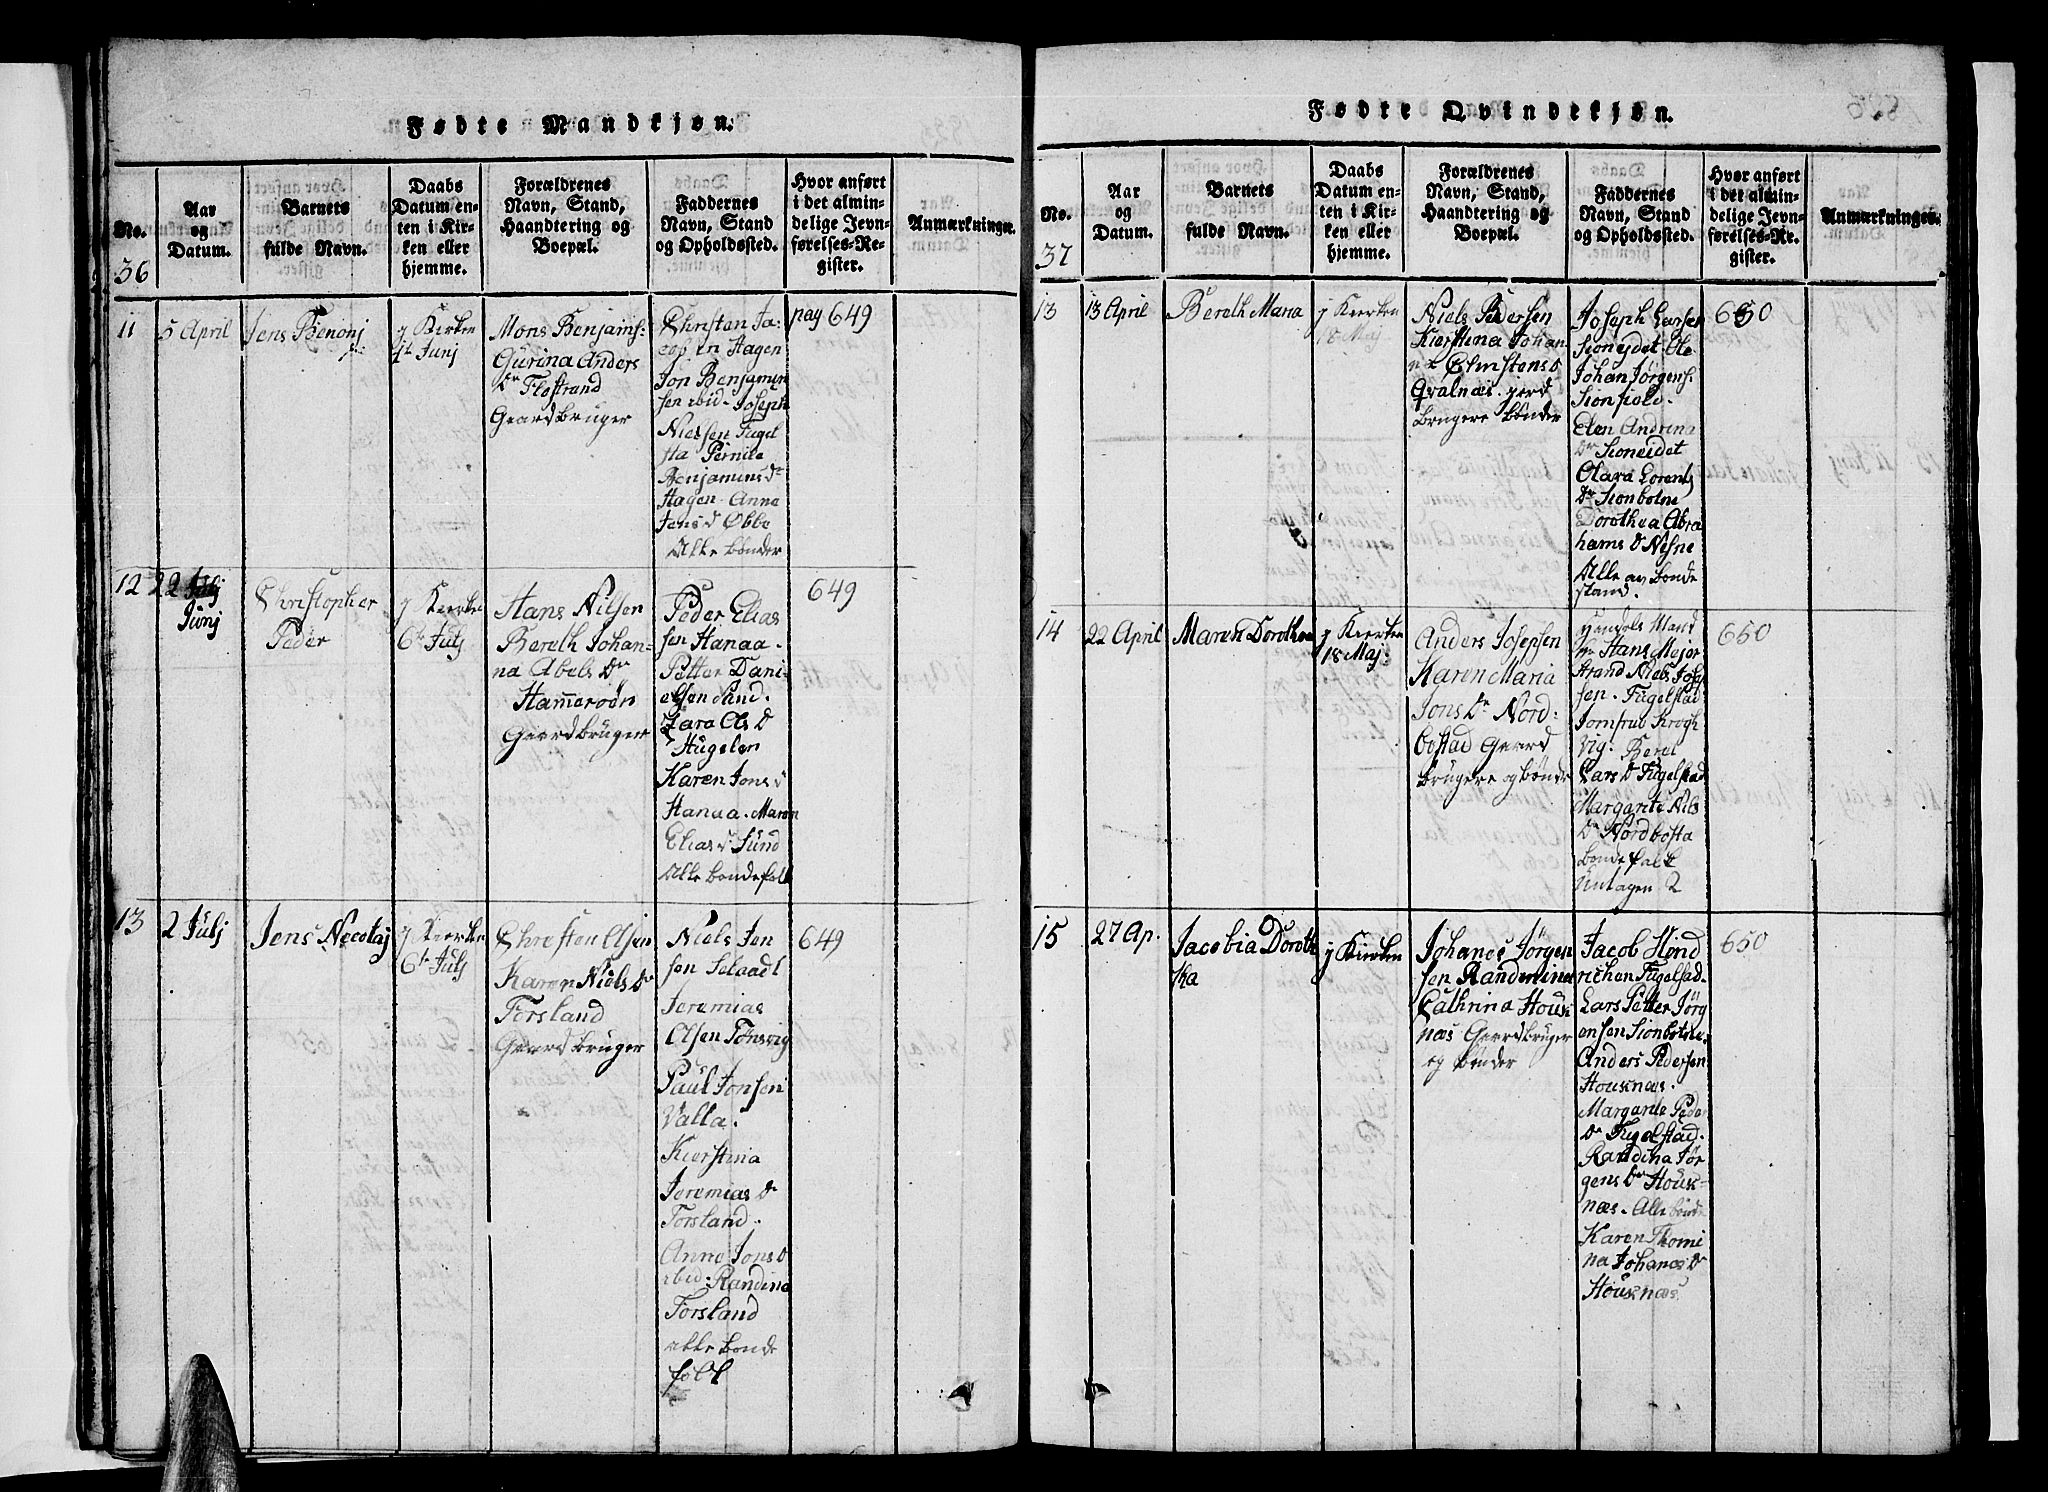 Fødte Mandkjøn.
No.
36
Aar
og
Datum.
Barnets
fulde Navn.
Daabs
Datum en-
ten i Kir-
ken eller
hjemme.
Forældrenes
Navn, Stand,
Haandtering og
Boepæl.
Faddernes
Navn, Stand
og Opholdssted.
Hvor anført
i det almin-
delige Jevn-
førelses-Re-
gister.
Anmærkninger.
11
5 April
Jens Benonj
j Kirken
Junj
Mons Benjams:
Gurina Anders
Dr Flostrand
Gaardbruger
Christen Ja:
cobsen Hagen
Jon Benjamin
sen ibid. Joseph
Nielsen Fugel
Pernile
Benjamins dr
Hagen. Anne
Jens d Øbbe
Alle bønder
pag 649
12
22 Julj
Junj
Christopher
Peder
j Kierken
6te Julj
Hans Nilsen
Bereth Johan-
na Abels Dr
Hamerøen
Gaardbruger
Peder Elias
sen Hanaa.
Petter Dani-
elsen Sund.
Zara Ols D
Hugelen
Karen Jons d
Hanaa. Maren
Elias d Sund
Alle bondefolk
649
13
2 Julj
Jens Necolaj
j Kierken
6te Julj
Christen Olsen
Karen Niels Dr
Forsland
Gaardbruger
Niels Jen
sen Selaadt
Jeremias
Olsen Tønsvig
Paul Jonsen
Valla.
Kierstina
Jeremias Dr
Forsland.
Anne Jons D
ibid: Randina
Forsland
alle bonde
folk
649
Fødte Qvindekjøn.
No.
37
Aar
og
Datum.
Barnets
fulde Navn.
Daabs
Datum en-
ten i Kir-
ken eller
hjemme.
Forældrenes
Navn, Stand,
Haandtering og
Boepæl.
Faddernes
Navn, Stand
og Opholdssted.
Hvor anført
i det almin-
delige Jevn-
førelses-Re-
gister.
Anmærkninger.
13
13 April
Bereth Maria
j Kierken
18 Maj
Niels Pedersen
Kierstina Johan
na Christens D
Qvalnæs. gord
brugere bønder
Joseph Larsen
Sioneidet. Ole
Johan Jørgens.
Sionfold.
Elen Andrina
Dr Sioneidet
Clara Lorents
Dr Sionbotne
Dorothea Abra
hams D Nesne
Alle av bonde
stand.
650
14
22 April
Maren Dorothea
j Kierken
18 Maj
Anders Josephsen
Karen Maria
Jons Dr Nord:
bostad Gaard
brugere og bønde
Handels Mand
Hr Hans Mejer
strand Niels Jose
sen. Fugelstad
Jomfrue Krogh
Vig. Beret
Lars D Fugelstad
Margarite Niels
Dr Nordbosta
bonde folk
Untagen 2
650
15
27 Ap.
Jacobia Doroth
ka
j Kierken
Johanes Jørgen
sen Randemina
Cathrina Hous
næs Gaardbruger
og bønder
Jacob Hend
richsen Fugelstad.
Lars Petter Jørg
ensen Sionbotne.
Anders Pedersen
Housnæs.
Margarite Peder
Dr Fugelstad.
Randina Jør
gens Dr Hous-
næs. Alle bønde
Karen Thomi
na Johanes D
Housnæs
650